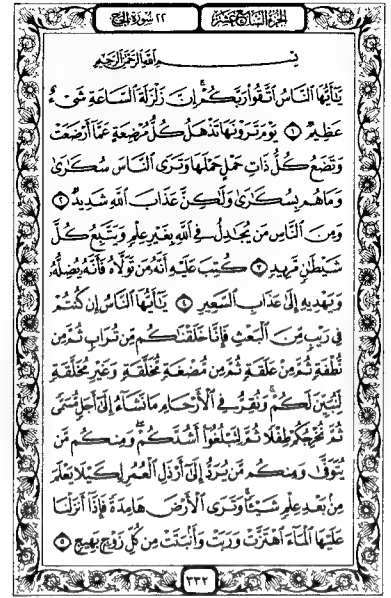 الجزء السابع عشر
٢٢ سورة الحج
بِسْمِ اللَّهِ الرَّحْمَٰنِ الرَّحِيمِ
يَٰٓأَيُّهَا النَّاسُ اتَّقُوا رَبَّكُمْ ۚ إِنَّ زَلْزَلَةَ السَّاعَةِ شَيْءٌ
عَظِيمٌ ١ يَوْمَ تَرَوْنَهَا تَذْهَلُ كُلُّ مُرْضِعَةٍ عَمَّا أَرْضَعَتْ
وَتَضَعُ كُلُّ ذَاتِ حَمْلٍ حَمْلَهَا وَتَرَى النَّاسَ سُكَٰرَىٰ
وَمَا هُم بِسُكَٰرَىٰ وَلَٰكِنَّ عَذَابَ اللَّهِ شَدِيدٌ ٢
وَمِنَ النَّاسِ مَن يُجَٰدِلُ فِي اللَّهِ بِغَيْرِ عِلْمٍ وَيَتَّبِعُ كُلَّ
شَيْطَٰنٍ مَّرِيدٍ ٣ كُتِبَ عَلَيْهِ أَنَّهُ مَن تَوَلَّاهُ فَأَنَّهُ يُضِلُّهُ
وَيَهْدِيهِ إِلَىٰ عَذَابِ السَّعِيرِ ٤ يَٰٓأَيُّهَا النَّاسُ إِن كُنتُمْ
فِي رَيْبٍ مِّنَ الْبَعْثِ فَإِنَّا خَلَقْنَٰكُم مِّن تُرَابٍ ثُمَّ مِن
نُّطْفَةٍ ثُمَّ مِنْ عَلَقَةٍ ثُمَّ مِن مُّضْغَةٍ مُّخَلَّقَةٍ وَغَيْرِ مُخَلَّقَةٍ
لِّنُبَيِّنَ لَكُمْ ۚ وَنُقِرُّ فِي الْأَرْحَامِ مَا نَشَآءُ إِلَىٰٓ أَجَلٍ مُّسَمًّى
ثُمَّ نُخْرِجُكُمْ طِفْلًا ثُمَّ لِتَبْلُغُوٓا أَشُدَّكُمْ ۖ وَمِنكُم مَّن
يُتَوَفَّىٰ وَمِنكُم مَّن يُرَدُّ إِلَىٰٓ أَرْذَلِ الْعُمُرِ لِكَيْلَا يَعْلَمَ
مِن بَعْدِ عِلْمٍ شَيْـًٔا ۚ وَتَرَى الْأَرْضَ هَامِدَةً فَإِذَآ أَنزَلْنَا
عَلَيْهَا الْمَآءَ اهْتَزَّتْ وَرَبَتْ وَأَنبَتَتْ مِن كُلِّ زَوْجٍ بَهِيجٍ ٥
٣٣٢